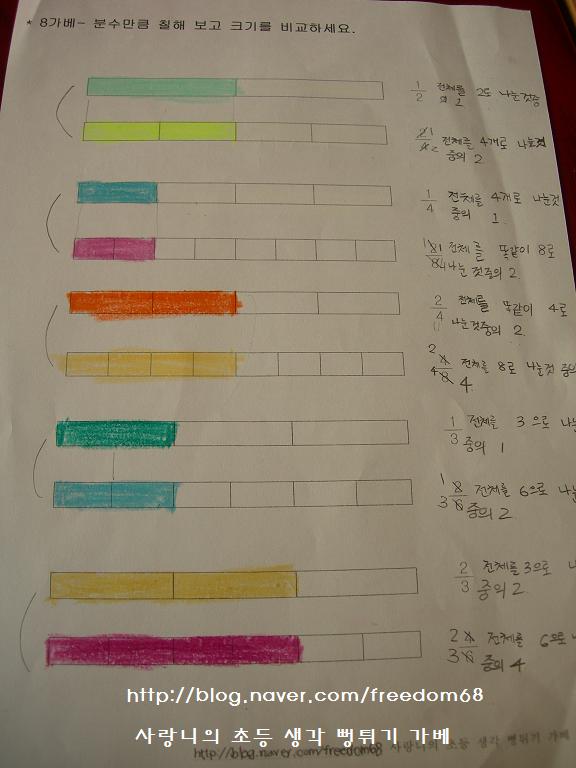 * 8가베- 분수만큼 칠해 보고 크기를 비교하세요.
1/2 전체를 2로 나눈것중
의 1
전체를 4개로 나눈것
중의 2
1/4 전체를 4개로 나눈것
중의 1.
전체를 똑같이 8로
나눈 것중의 2.
2/4 전체를 똑같이 4로
나눈것중의 2.
전체를 8로 나눈것 중의
4.
1/3 전체를 3으로
중의 1
전체를 6으로
중의 2
2/3 전체를 3으로
중의 2.
전체를 6으로
중의 4
http://blog.naver.com/freedom68
사랑니의 초등 생각 뻥튀기 가베
http://blog.naver.com/freedom68 사랑니의 초등 생각 뻥튀기 가베